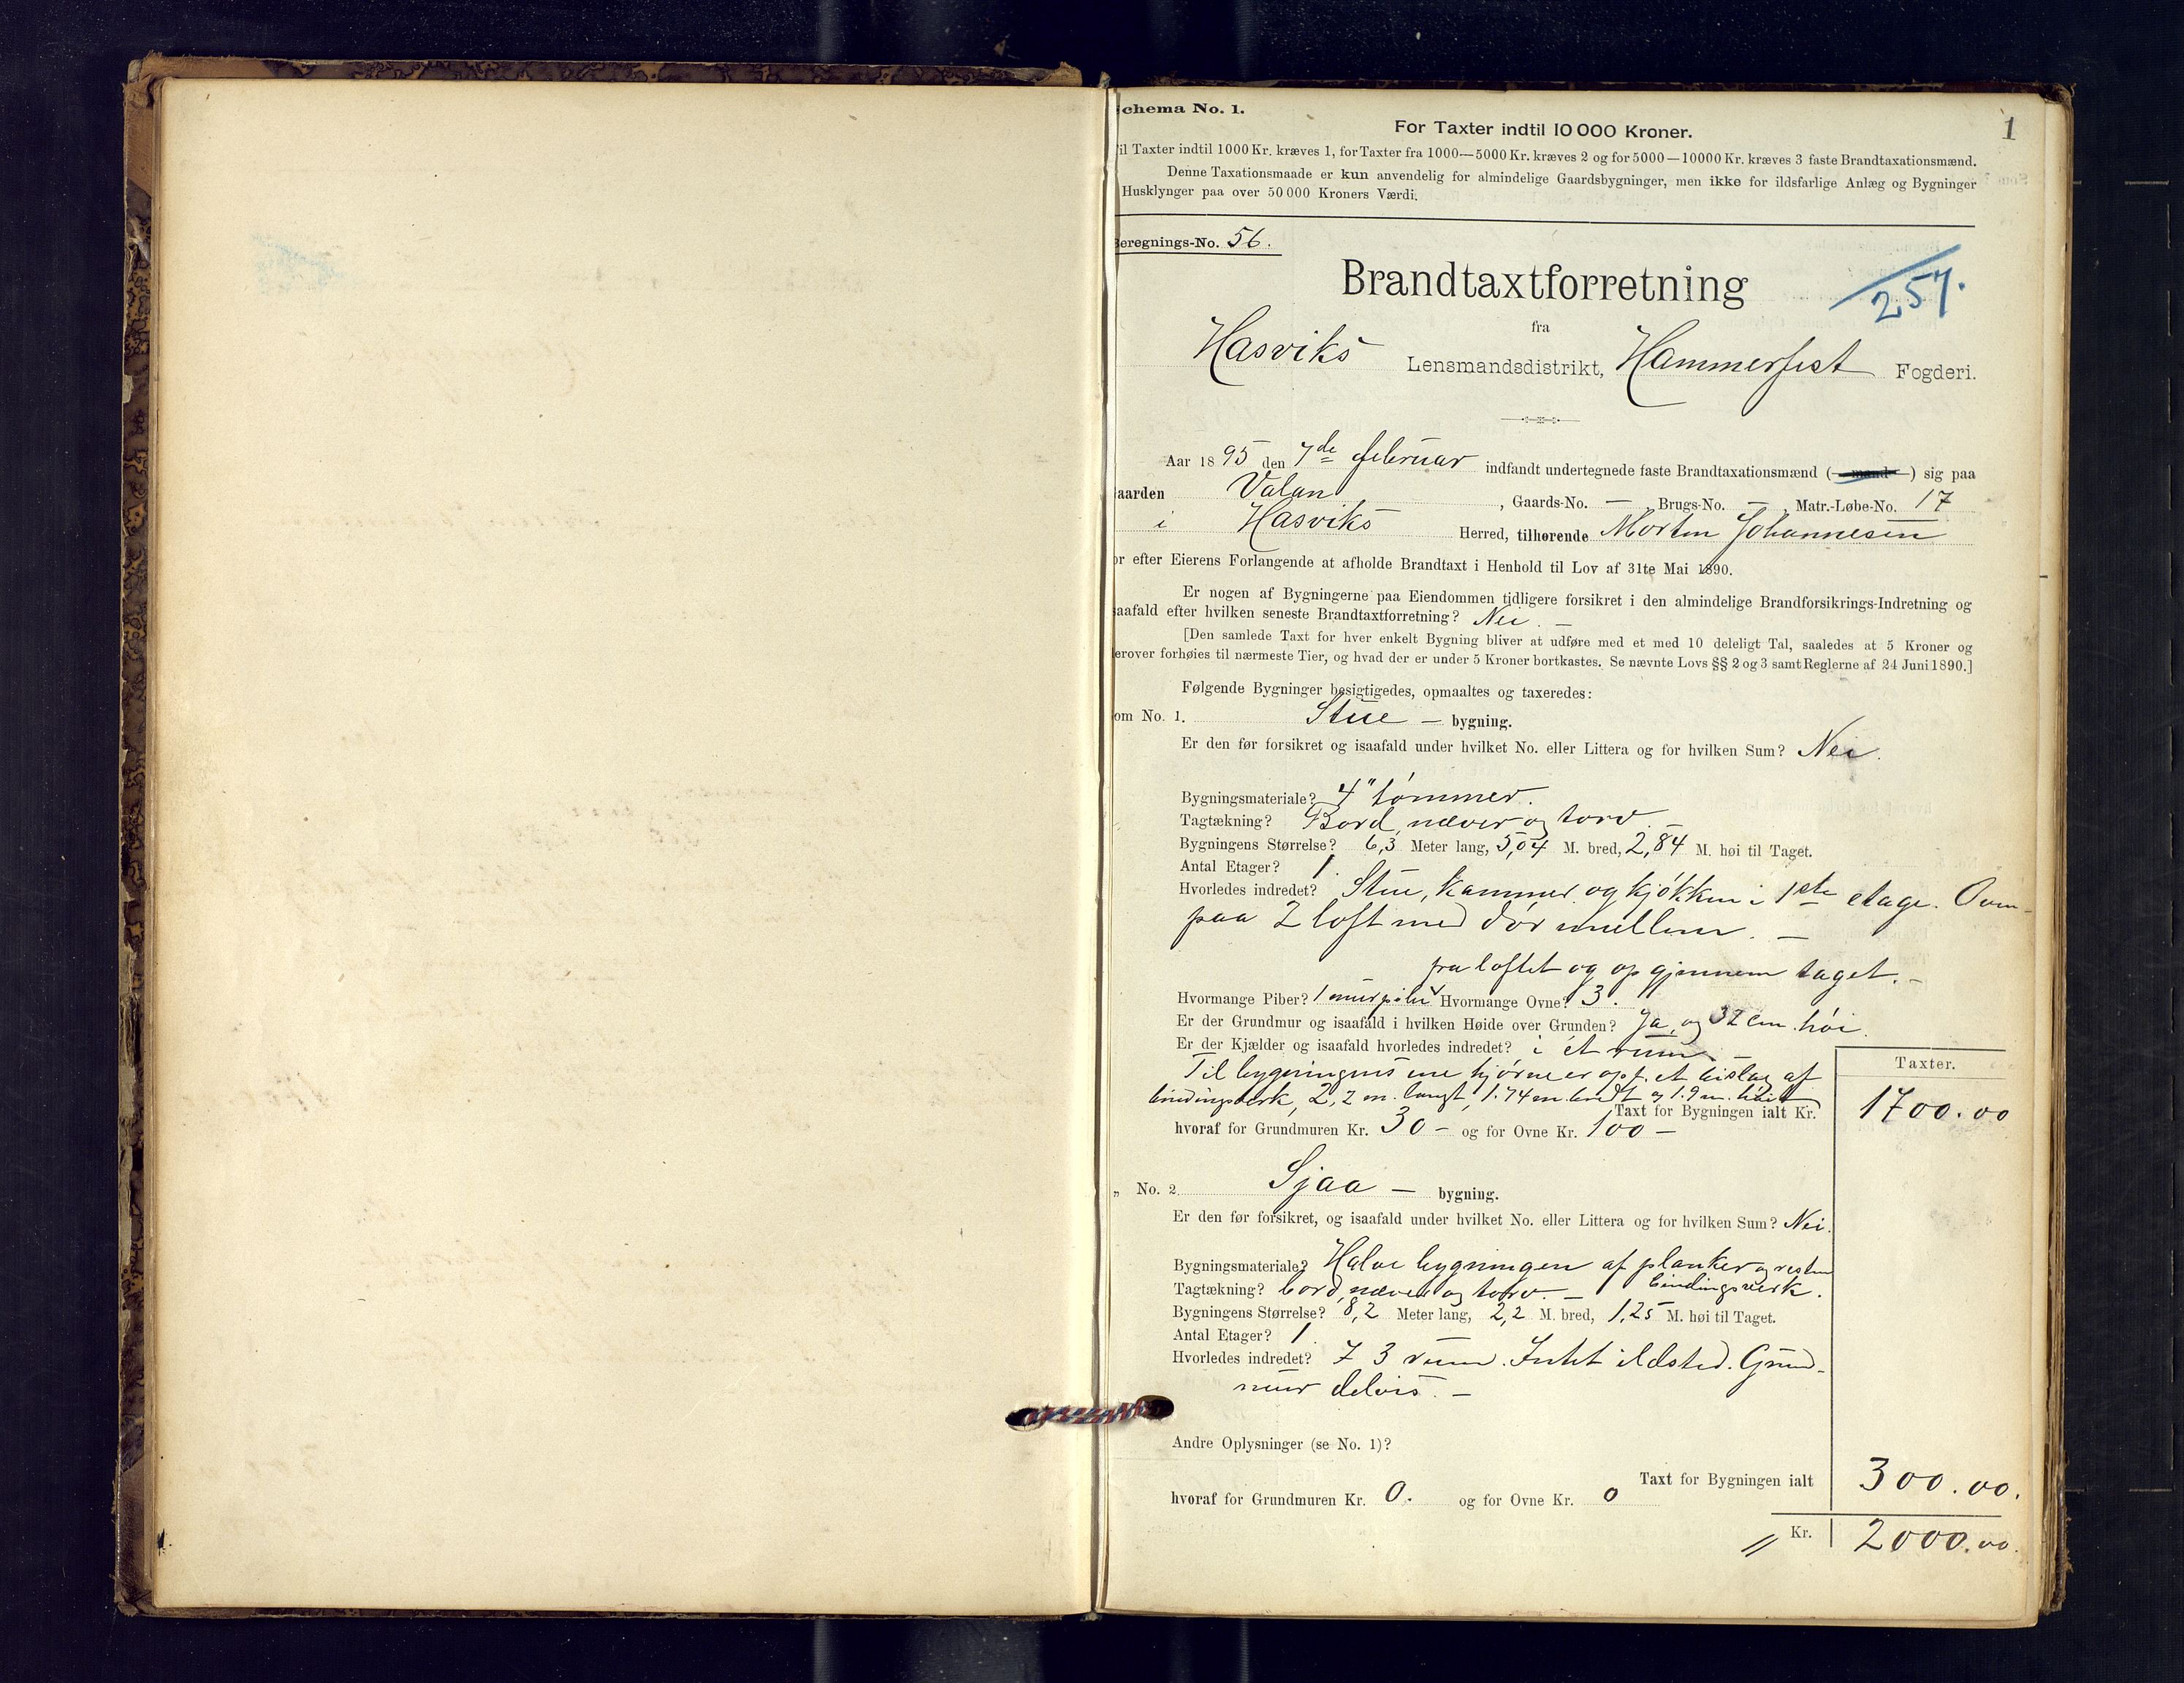 chema No. 1.
1
For Taxter indtil 10 000 Kroner.
il Taxter indtil 1000 Kr. kræves 1, for Taxter fra 1000—5000 Kr. kræves 2 og for 5000—10000 Kr. kræves 3 faste Brandtaxationsmænd.
Denne Taxationsmaade er kun anvendelig for almindelige Gaardsbygninger, men ikke for ildsfarlige Anlæg og Bygninger
Husklynger paa over 50 000 Kroners Værdi.
eregnings-No. 56.
Brandtaxtforretning
257.
fra
Hasviks Lensmandsdistrikt, Hammerfest Fogderi.
Aar 1895 den 7de februar indfandt undertegnede faste Brandtaxationsmænd (mand) sig paa
aarden Valan, Gaards-No. — Brugs-No. — Matr.-Løbe-No. 17
i Hasviks Herred, tilhørende Morten Johannesen
or efter Eierens Forlangende at afholde Brandtaxt i Henhold til Lov af 31te Mai 1890.
Er nogen af Bygningerne paa Eiendommen tidligere forsikret i den almindelige Brandforsikrings-Indretning og
saafald efter hvilken seneste Brandtaxtforretning? Nei. —
[Den samlede Taxt for hver enkelt Bygning bliver at udføre med et med 10 deleligt Tal, saaledes at 5 Kroner og
erover forhøies til nærmeste Tier, og hvad der er under 5 Kroner bortkastes. Se nævnte Lovs §§ 2 og 3 samt Reglerne af 24 Juni 1890.]
Følgende Bygninger besigtigedes, opmaaltes og taxeredes:
om No. 1. Stue — bygning.
Er den før forsikret og isaafald under hvilket No. eller Littera og for hvilken Sum? Nei.
Bygningsmateriale? 4" tømmer.
Tagtækning? Bord, næver og torv.
Bygningens Størrelse? 6,3 Meter lang, 5,04 M. bred, 2,84 M. høi til Taget.
Antal Etager? 1.
Hvorledes indredet? Stue, kammer og kjøkken i 1ste etage. Oven-
paa 2 loft med dør mellem. —
fra loftet og op gjennem taget. —
Hvormange Piber? 1 murpibe Hvormange Ovne? 3.
Er der Grundmur og isaafald i hvilken Høide over Grunden? Ja, og 32 cm. høi.
Er der Kjælder og isaafald hvorledes indredet? i et rum. —
Taxter.
Til bygningens ene hjørne er opf. et bislag af
bindingsverk, 2,2 m. langt, 1.74 m. bredt og 1.9 m. høit
Taxt for Bygningen ialt Kr. 1700.00
hvoraf for Grundmuren Kr. 30 — og for Ovne Kr. 100 —
„ No. 2 Sjaa — bygning.
Er den før forsikret, og isaafald under hvilket No. eller Littera og for hvilken Sum? Nei.
Bygningsmateriale? Halve bygningen af planker og resten
bindingsverk.
Tagtækning? bord, næver og torv. —
Bygningens Størrelse? 8,2 Meter lang, 2,2 M. bred, 1,25 M. høi til Taget.
Antal Etager? 1.
Hvorledes indredet? I 3 rum. Intet ildsted. Grund-
mur delvis. —
Andre Oplysninger (se No. 1)?
Taxt for Bygningen ialt 300.00.
hvoraf for Grundmuren Kr. 0. og for Ovne Kr. 0
Kr. 2000.00.